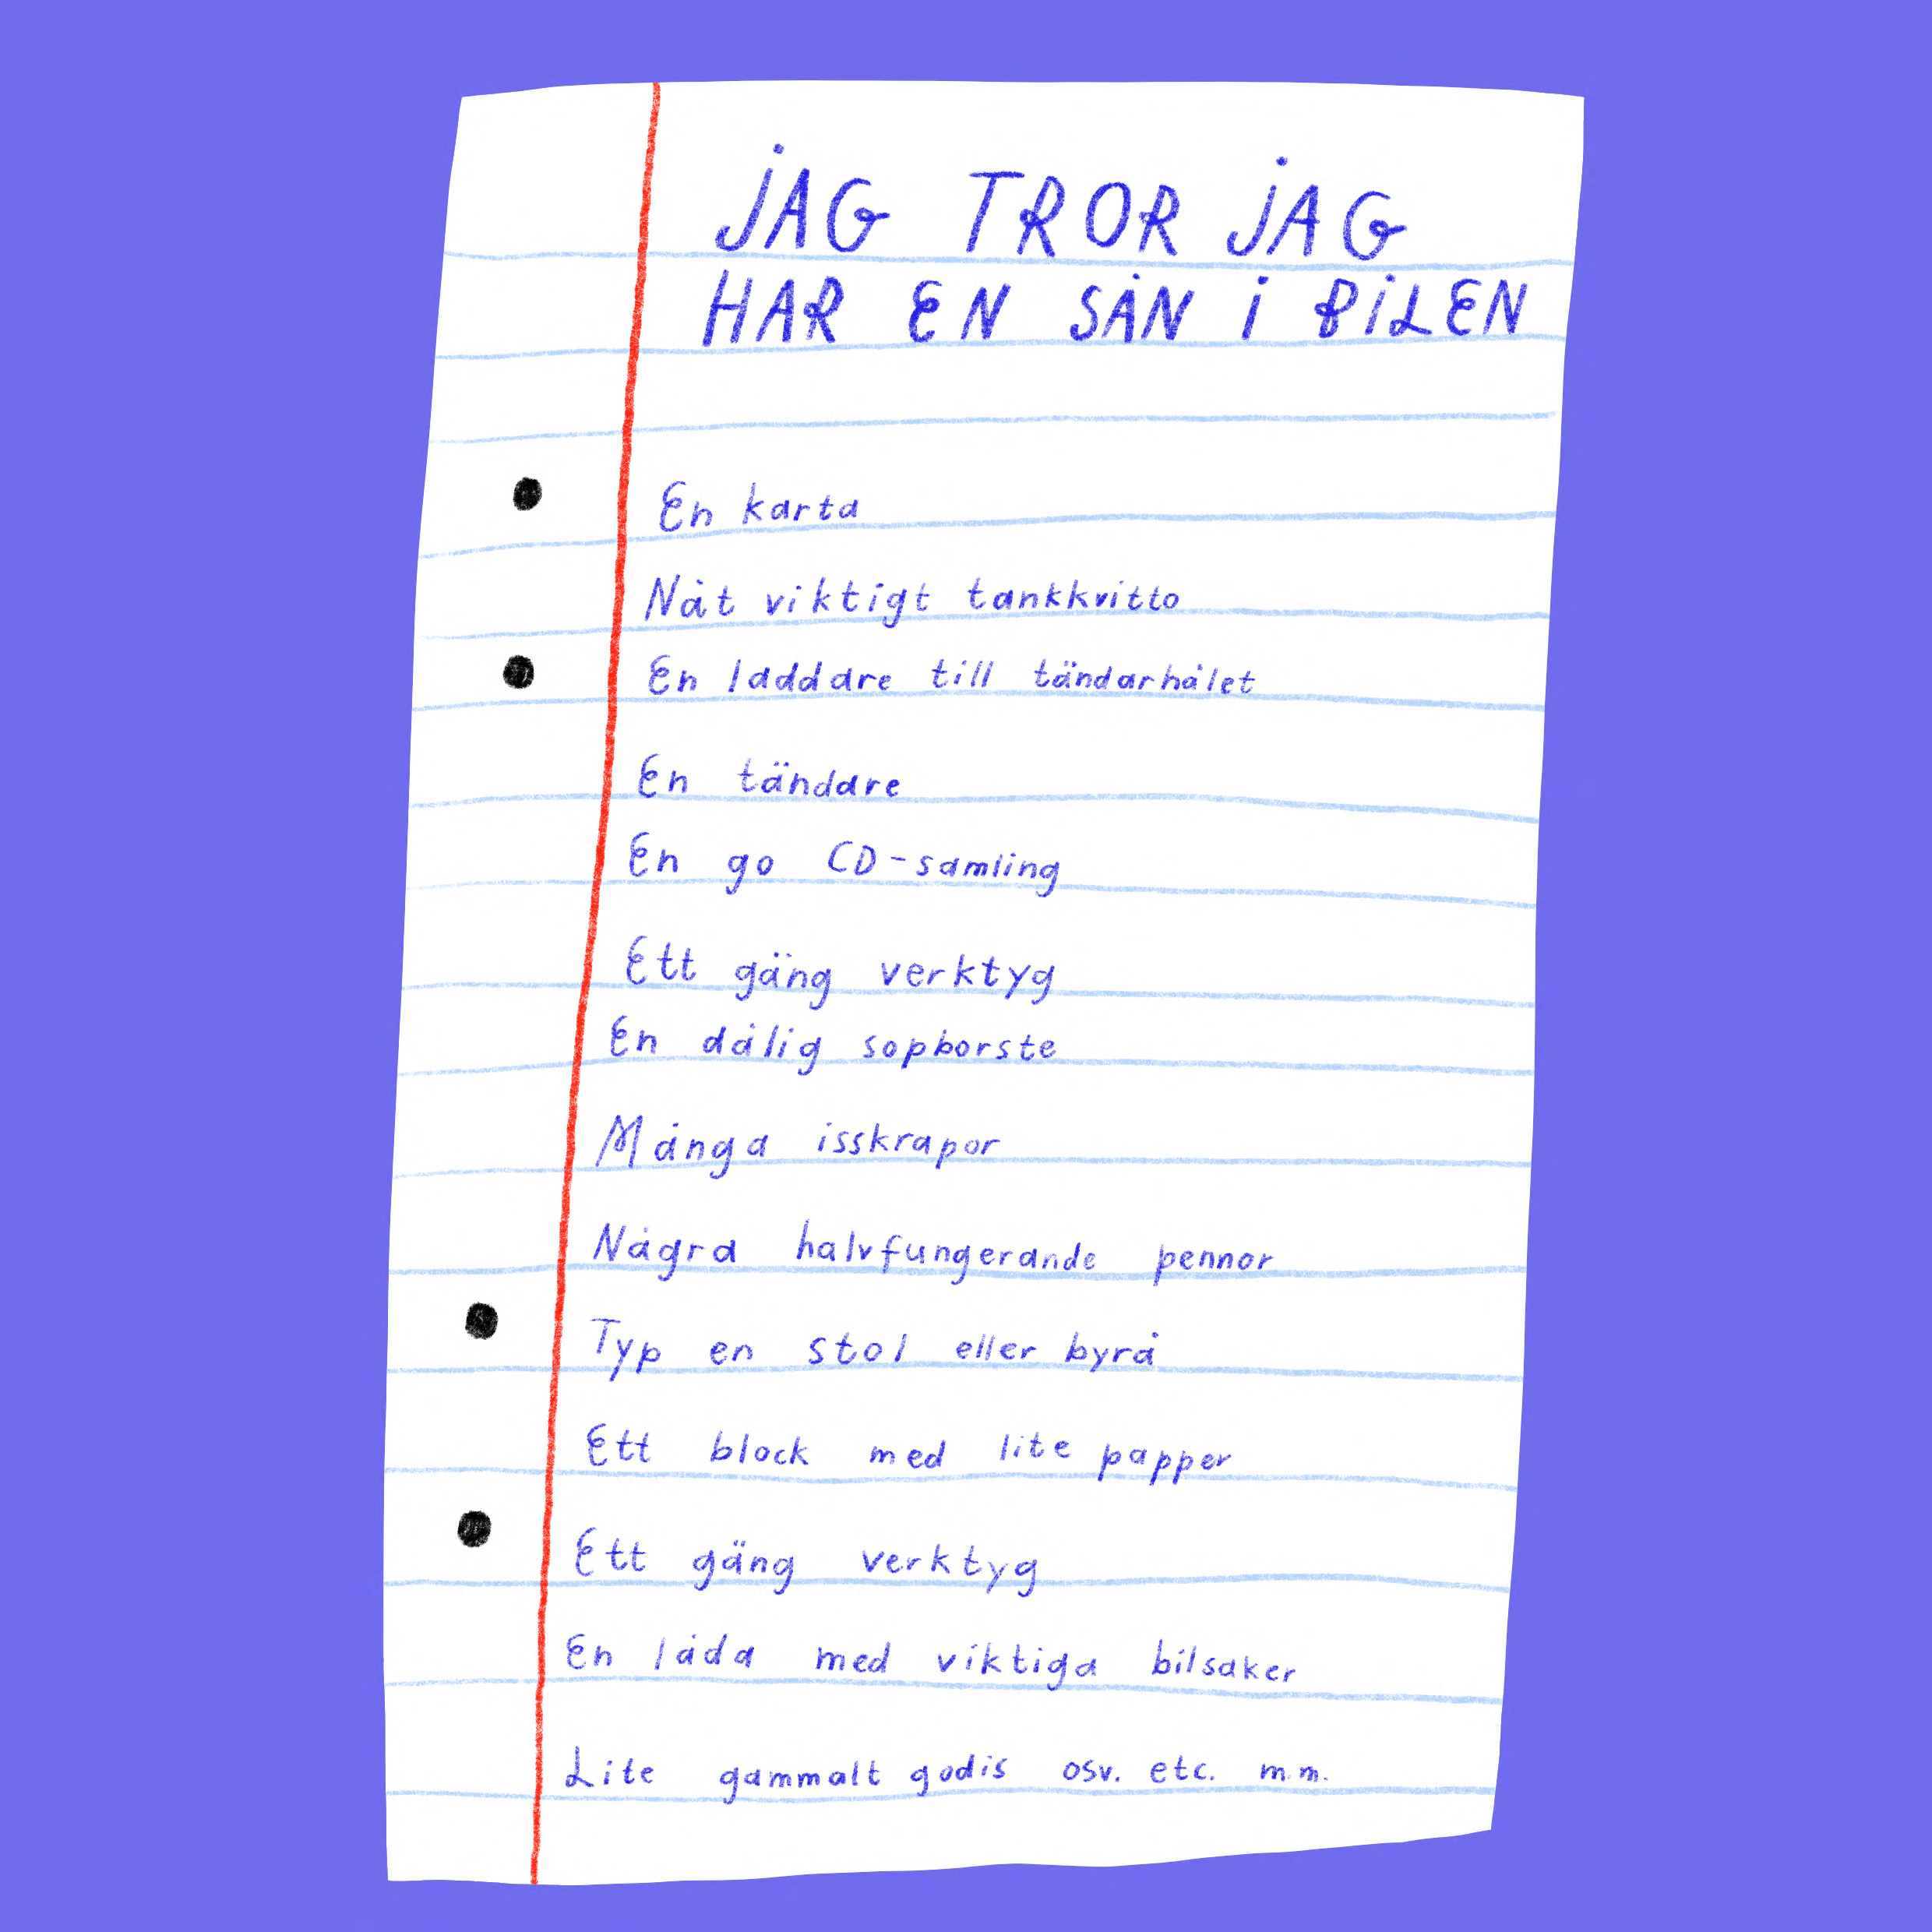 JAG TROR JAG
HAR EN SÅN I BILEN
En karta
Nåt viktigt tankkvitto
En laddare till tändarhålet
En tändare
En go CD-samling
Ett gäng verktyg
En dålig sopborste
Många isskrapor
Några halvfungerande pennor
Typ en stol eller byrå
Ett block med lite papper
Ett gäng verktyg
En låda med viktiga bilsaker
Lite gammalt godis osv. etc. m.m.